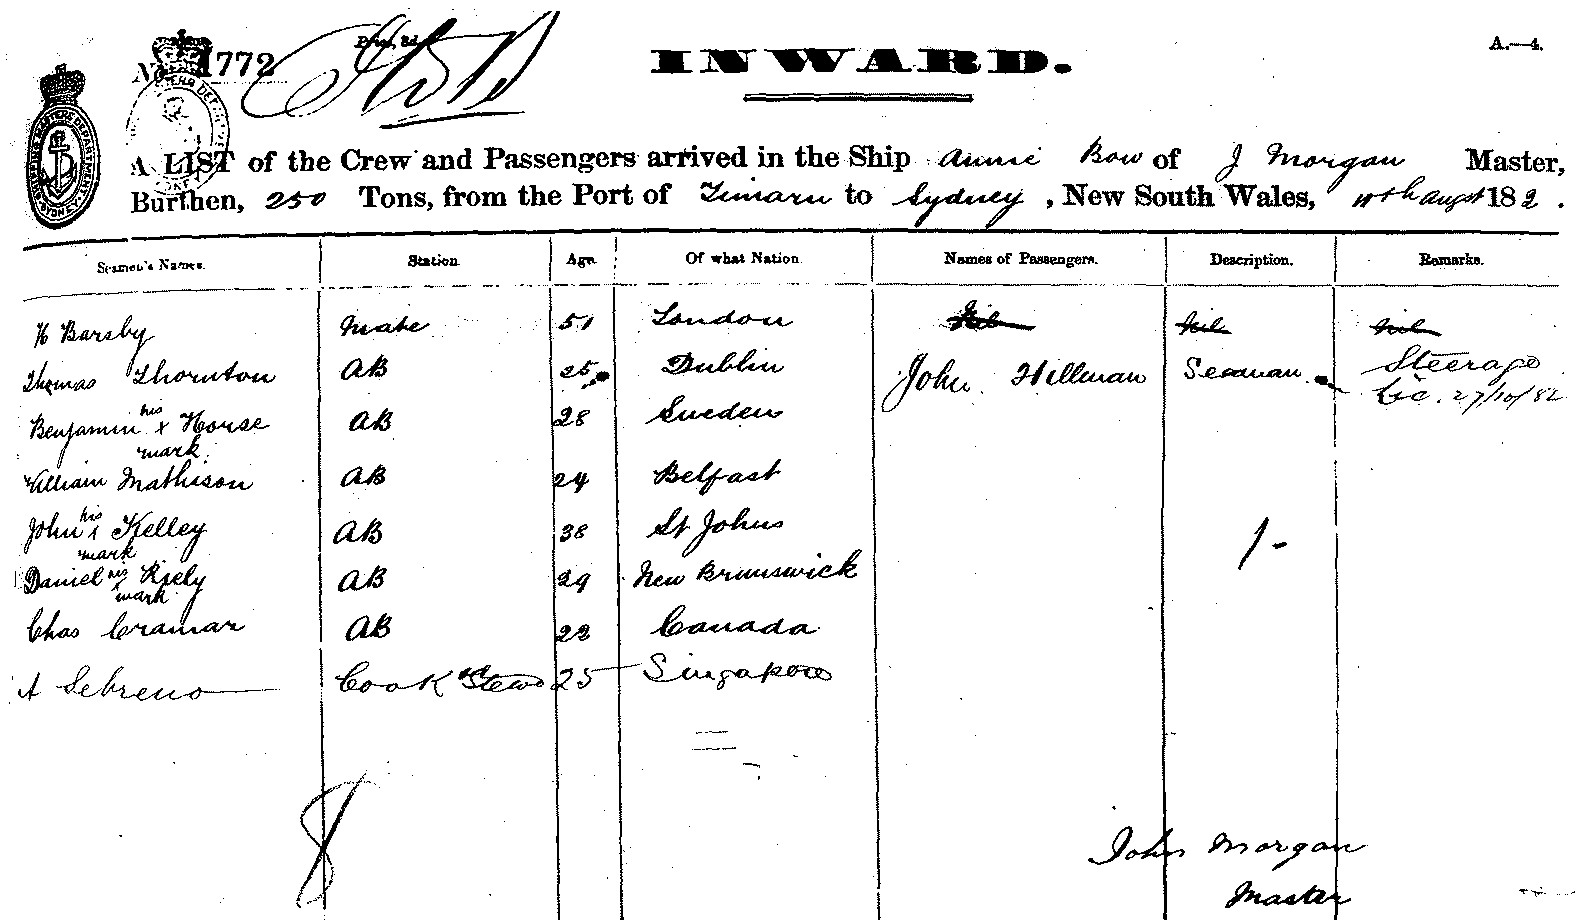 No. 1772
INWARD.
A.—4.
A LIST of the Crew and Passengers arrived in the Ship Annie Bow of J Morgan Master,
Burthen, 250 Tons, from the Port of Timaru to Sydney, New South Wales, 11th Augst 1882.
Seamen's Names. Station. Age. Of what Nation. Names of Passengers. Description. Remarks.
H Barsby Mate 51 London Nil Nil Nil
Thomas Thornton AB 25 Dublin John Hillman Seaman Steerage
27/10/82
Benjamin his x Horse mark AB 28 Sweden
William Mathison AB 24 Belfast
John his x Kelley mark AB 38 St Johns
Daniel his x Kiely mark AB 29 New Brunswick
Chas Cramar AB 22 Canada
A Sebreno Cook & Stewd 25 Singapore
1-
8
John Morgan
Master